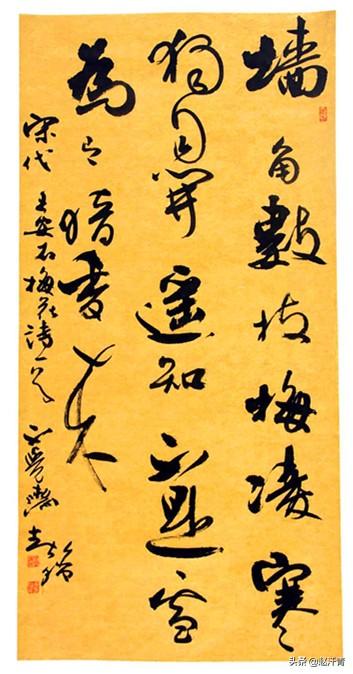 墙角數枝梅凌寒
獨自開遥知不是雪
為有暗香来
宋代 王安石梅花诗一首
头条 @赵汗青